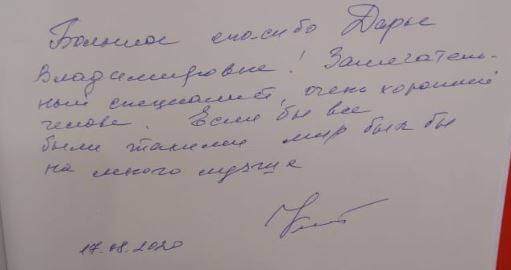 Большое спасибо Дарье
Владимировне! Замечатель-
ный специалист, очень хороший
челове. Если бы все
были такими мир был бы
на много лучше
17.08.2020